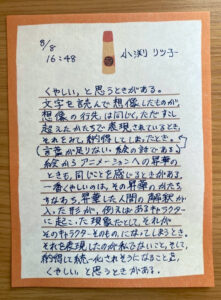 8/8
16:48
小渕 リツ子
くやしい、と思うときがある。
文字を読んで想像したものが、
想像の行先は同じく、ただ すこし
超えたかたちで表現されているとき。
それをみて、納得してしまったとき。
(言葉が足りない。絵の時である。)
絵から アニメーションへの昇華の
ときも、同じことを感じるときがある。
一番くやしいのは、その昇華のかたち、
すなわち、昇華した人間の解釈が
入った形が、例えばあるキャラクター
に起こった現象だとして、それが
そのキャラクターそのもの、になってしまうとき。
それを表現したのが私でないこと、そして、
納得して統一化されそうになること を、
くやしい、と思うときがある。